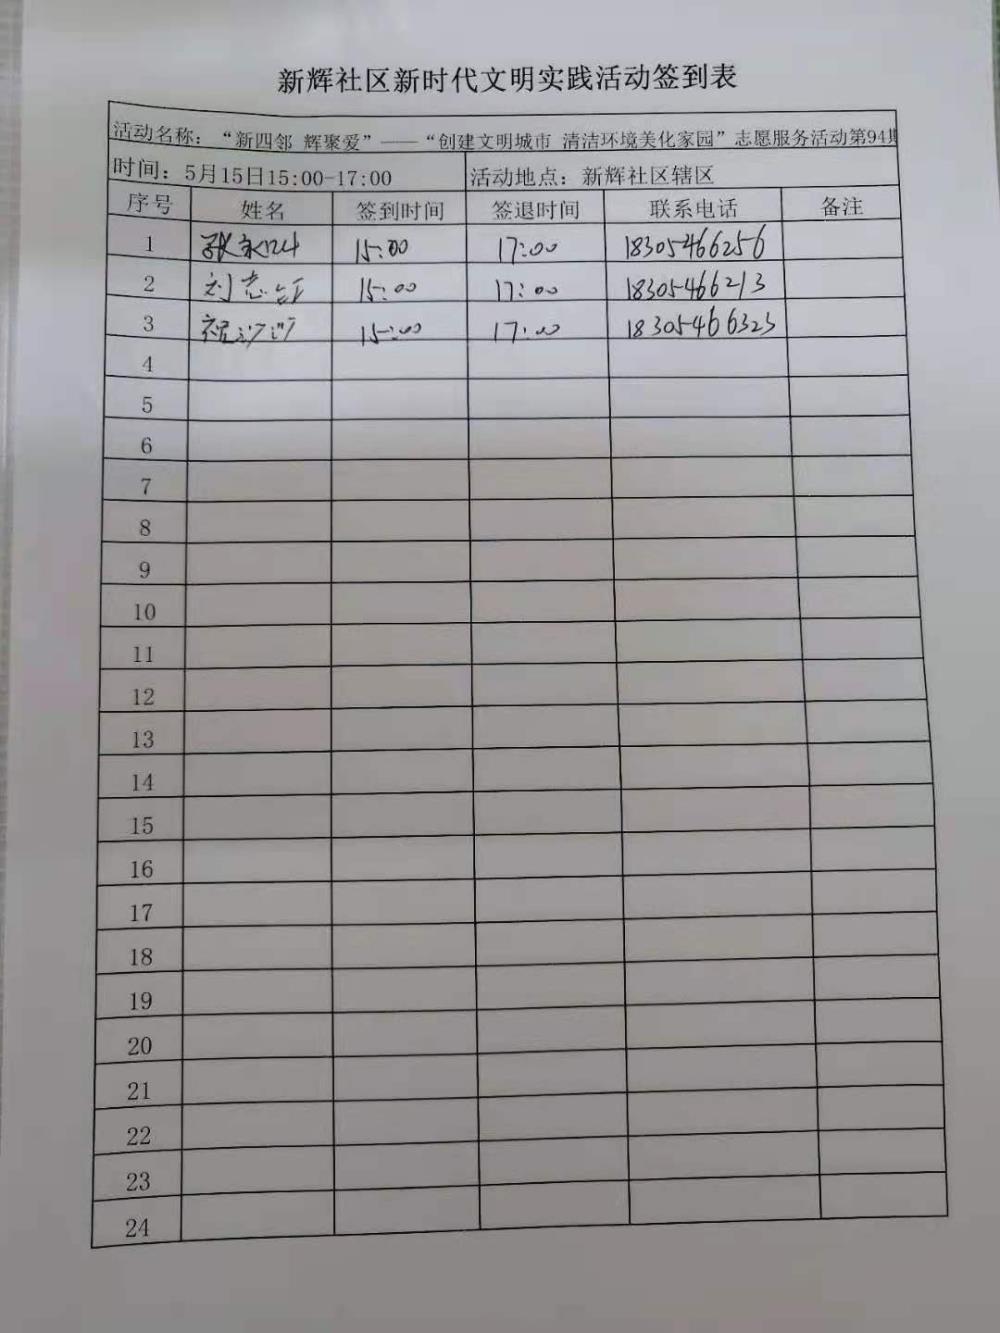 新辉社区新时代文明实践活动签到表
活动名称：“新四邻 辉聚爱”——“创建文明城市 清洁环境美化家园”志愿服务活动第94期
时间：5月15日15:00-17:00 活动地点：新辉社区辖区
序号 姓名 签到时间 签退时间 联系电话 备注
1 15:00 17:00 18305466256
2 刘志 15:00 17:00 18305466213
3 15:00 17:00 18305466323
4
5
6
7
8
9
10
11
12
13
14
15
16
17
18
19
20
21
22
23
24